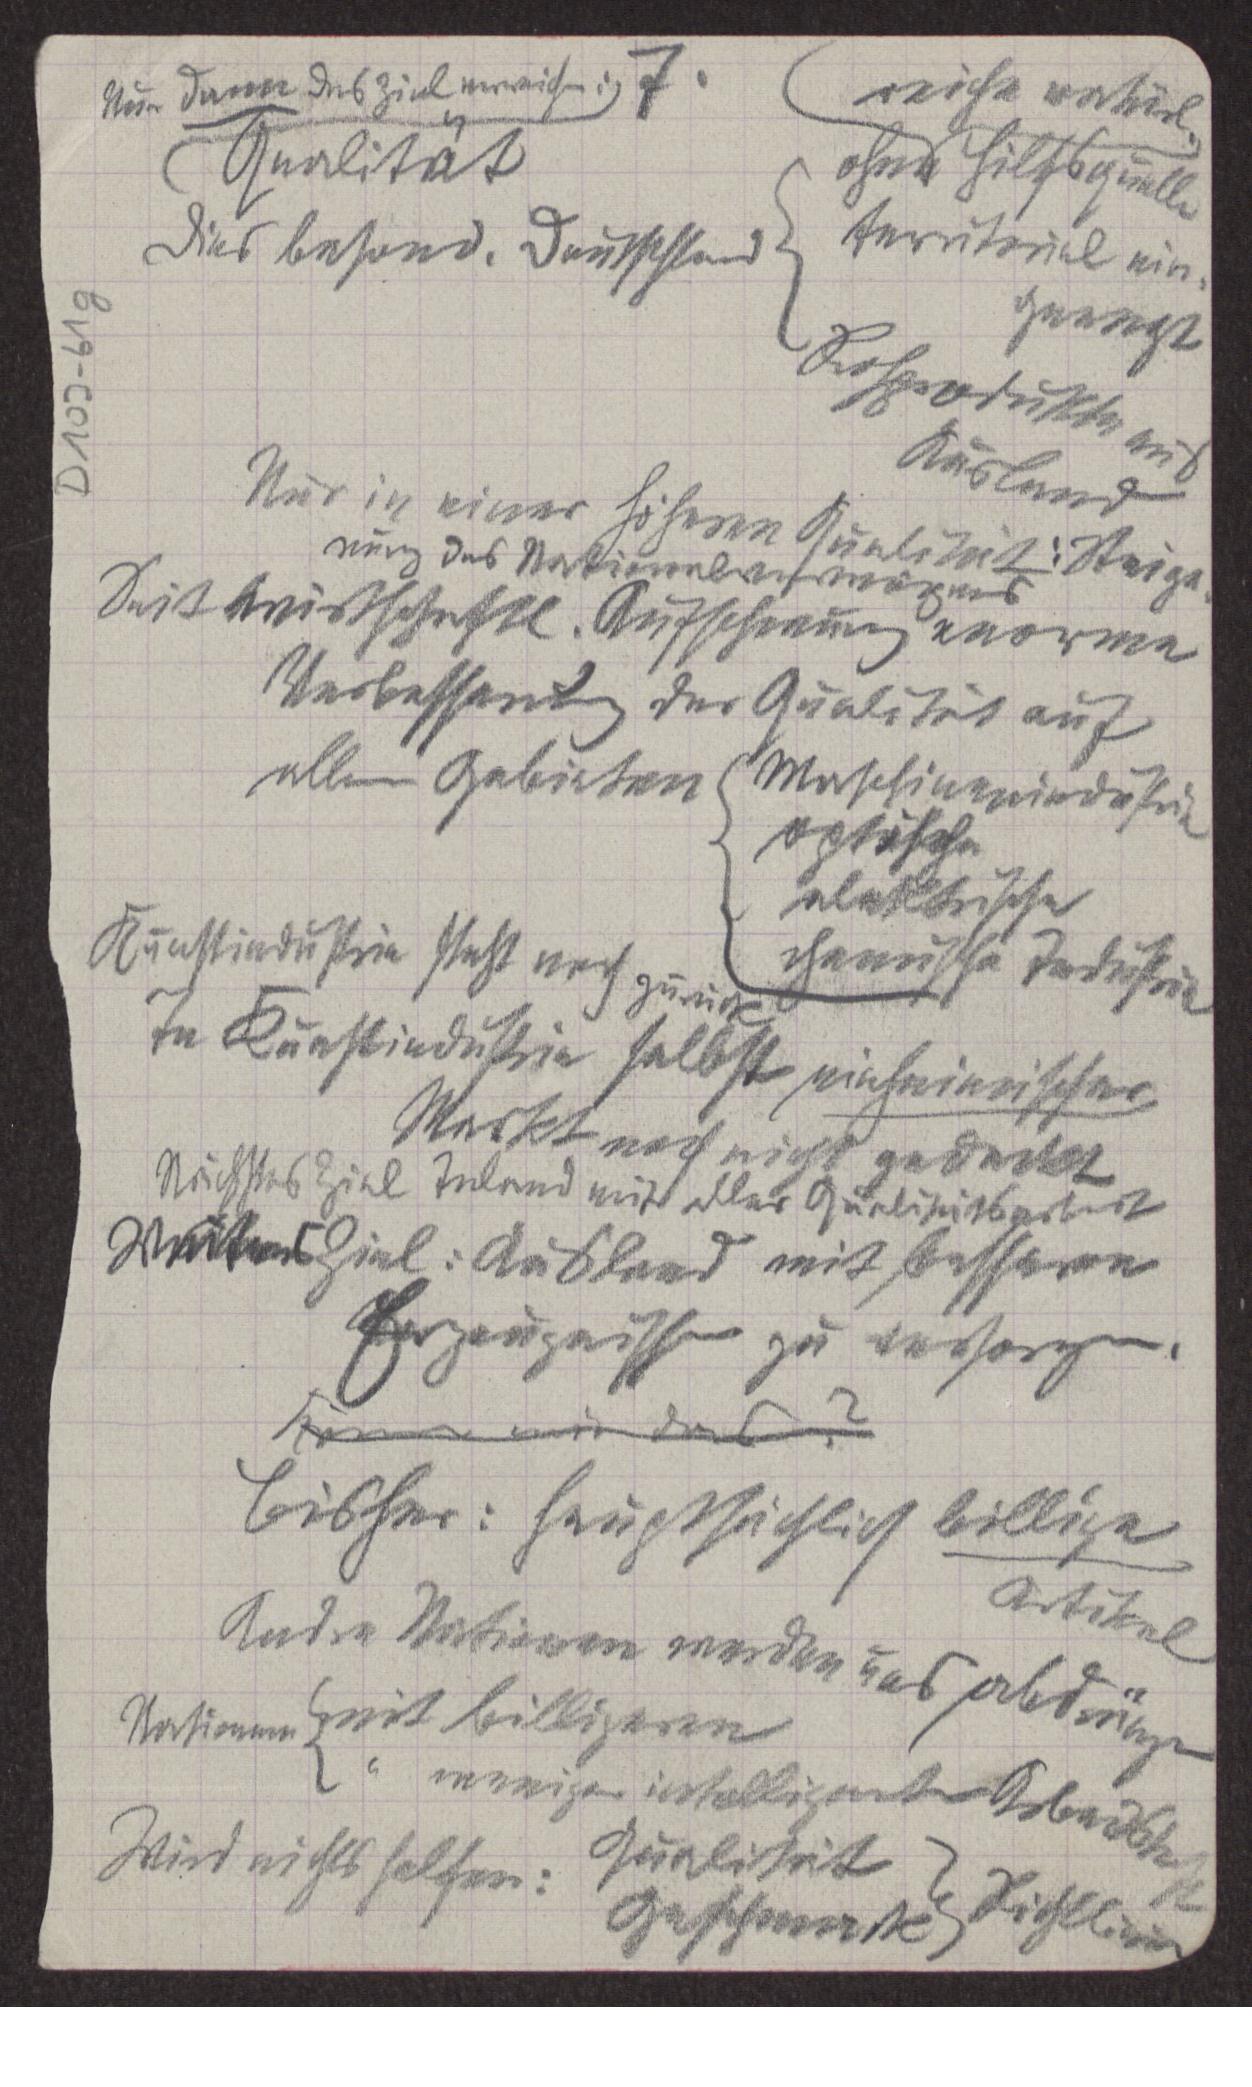 7.
Nur dann das Ziel erreichen:
Qualität
Dies besond. Deutschland
reiche natürl.
ohne Hilfsquellen
territorial ein-
geengt
Rohprodukte aus
Ausland
Nur in einer höheren Qualität: Steige-
rung des Nationalvermögens
Seit wirtschaftl. Aufschwung enorme
Verbesserung der Qualität auf
allen Gebieten
Maschinenindustrie
optische
elektrische
chemische Industrie
Kunstindustrie steht noch zurück
In Kunstindustrie selbst einheimischer
Markt noch nicht gedeckt
Nächstes Ziel Inland mit aller Qualitätsarbeit
Weiteres Ziel: Ausland mit besseren
Erzeugnissen zu versorgen.
Können wir das?
Bisher: hauptsächlich billige
Artikel
Andre Nationen werden uns abdrängen
Nationen mit billigeren
" weniger intelligenten Arbeitskräft
Wird nichts helfen: Qualität
Geschmack
Richtlinien
D 102-61g